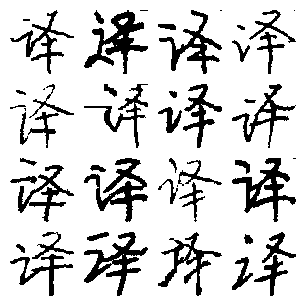 译译译译
译译译译
译译译译
译译译译